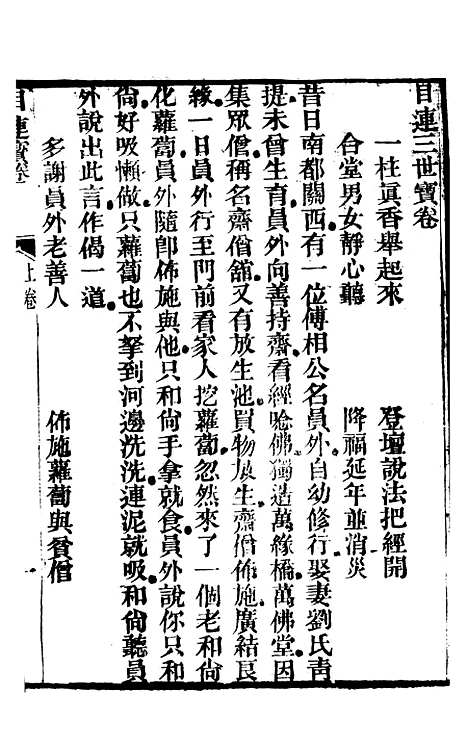 目連三世寶卷
一柱眞香舉起來　登壇說法把經開
合堂男女靜心聽　降福延年並消災
昔日南都關西有一位傅相公名員外自幼修行娶妻劉氏青
提未曾生育員外向善持齋看經唸佛獨造萬緣橋萬佛堂因
集眾僧稱名齋僧舘又有放生池買物放生齋僧佈施廣結良
緣一日員外行至門前看家人挖蘿蔔忽然來了一個老和尙
化蘿蔔員外隨卽佈施與他只和尙手拿就食員外說你只和
尙好吸懶做只蘿蔔也不拏到河邊洗洗連泥就吸和尙聽員
外說出此言作偈一道
多謝員外老善人　佈施蘿蔔與貧僧
目連寶卷　上卷